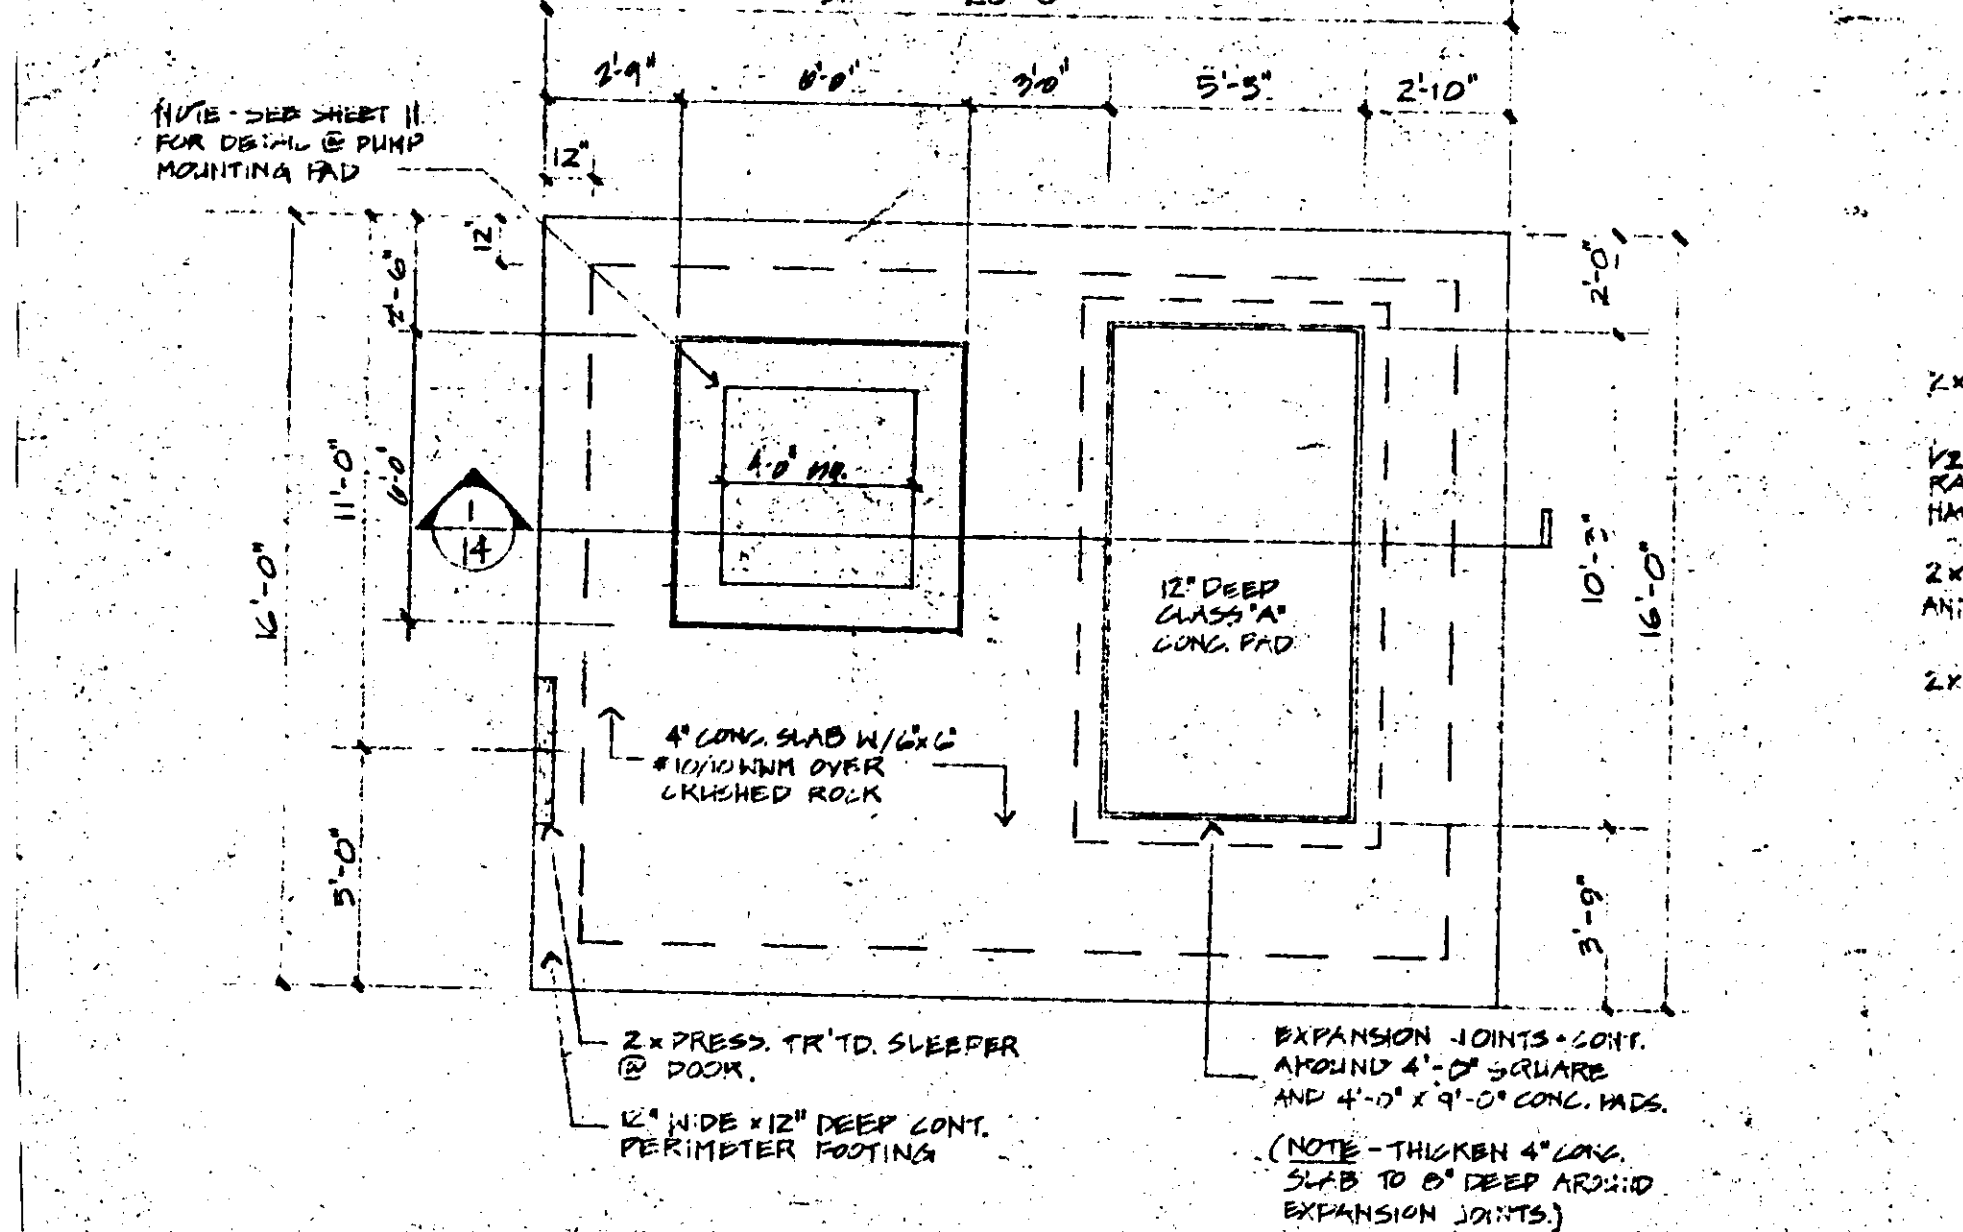 2'-9"
6'-0"
3'-0"
5'-3"
2'-10"
NOTE - SEE SHEET 11
FOR DETAIL @ PUMP
MOUNTING PAD
12"
12"
2'-6"
2'-0"
11'-0"
6'-0"
16'-0"
4'-0" SQ.
1
14
10'-3"
16'-0"
12" DEEP
CLASS "A"
CONC. PAD
4" CONC. SLAB W/6"x6"
#10/10 WWM OVER
CRUSHED ROCK
5'-0"
3'-9"
2x PRESS. TR'TD. SLEEPER
@ DOOR.
12" WIDE x 12" DEEP CONT.
PERIMETER FOOTING
EXPANSION JOINTS - CONT.
AROUND 4'-0" SQUARE
AND 4'-0" x 9'-0" CONC. PADS.
(NOTE - THICKEN 4" CONC.
SLAB TO 8" DEEP AROUND
EXPANSION JOINTS.)
2x
RA
2x
2x